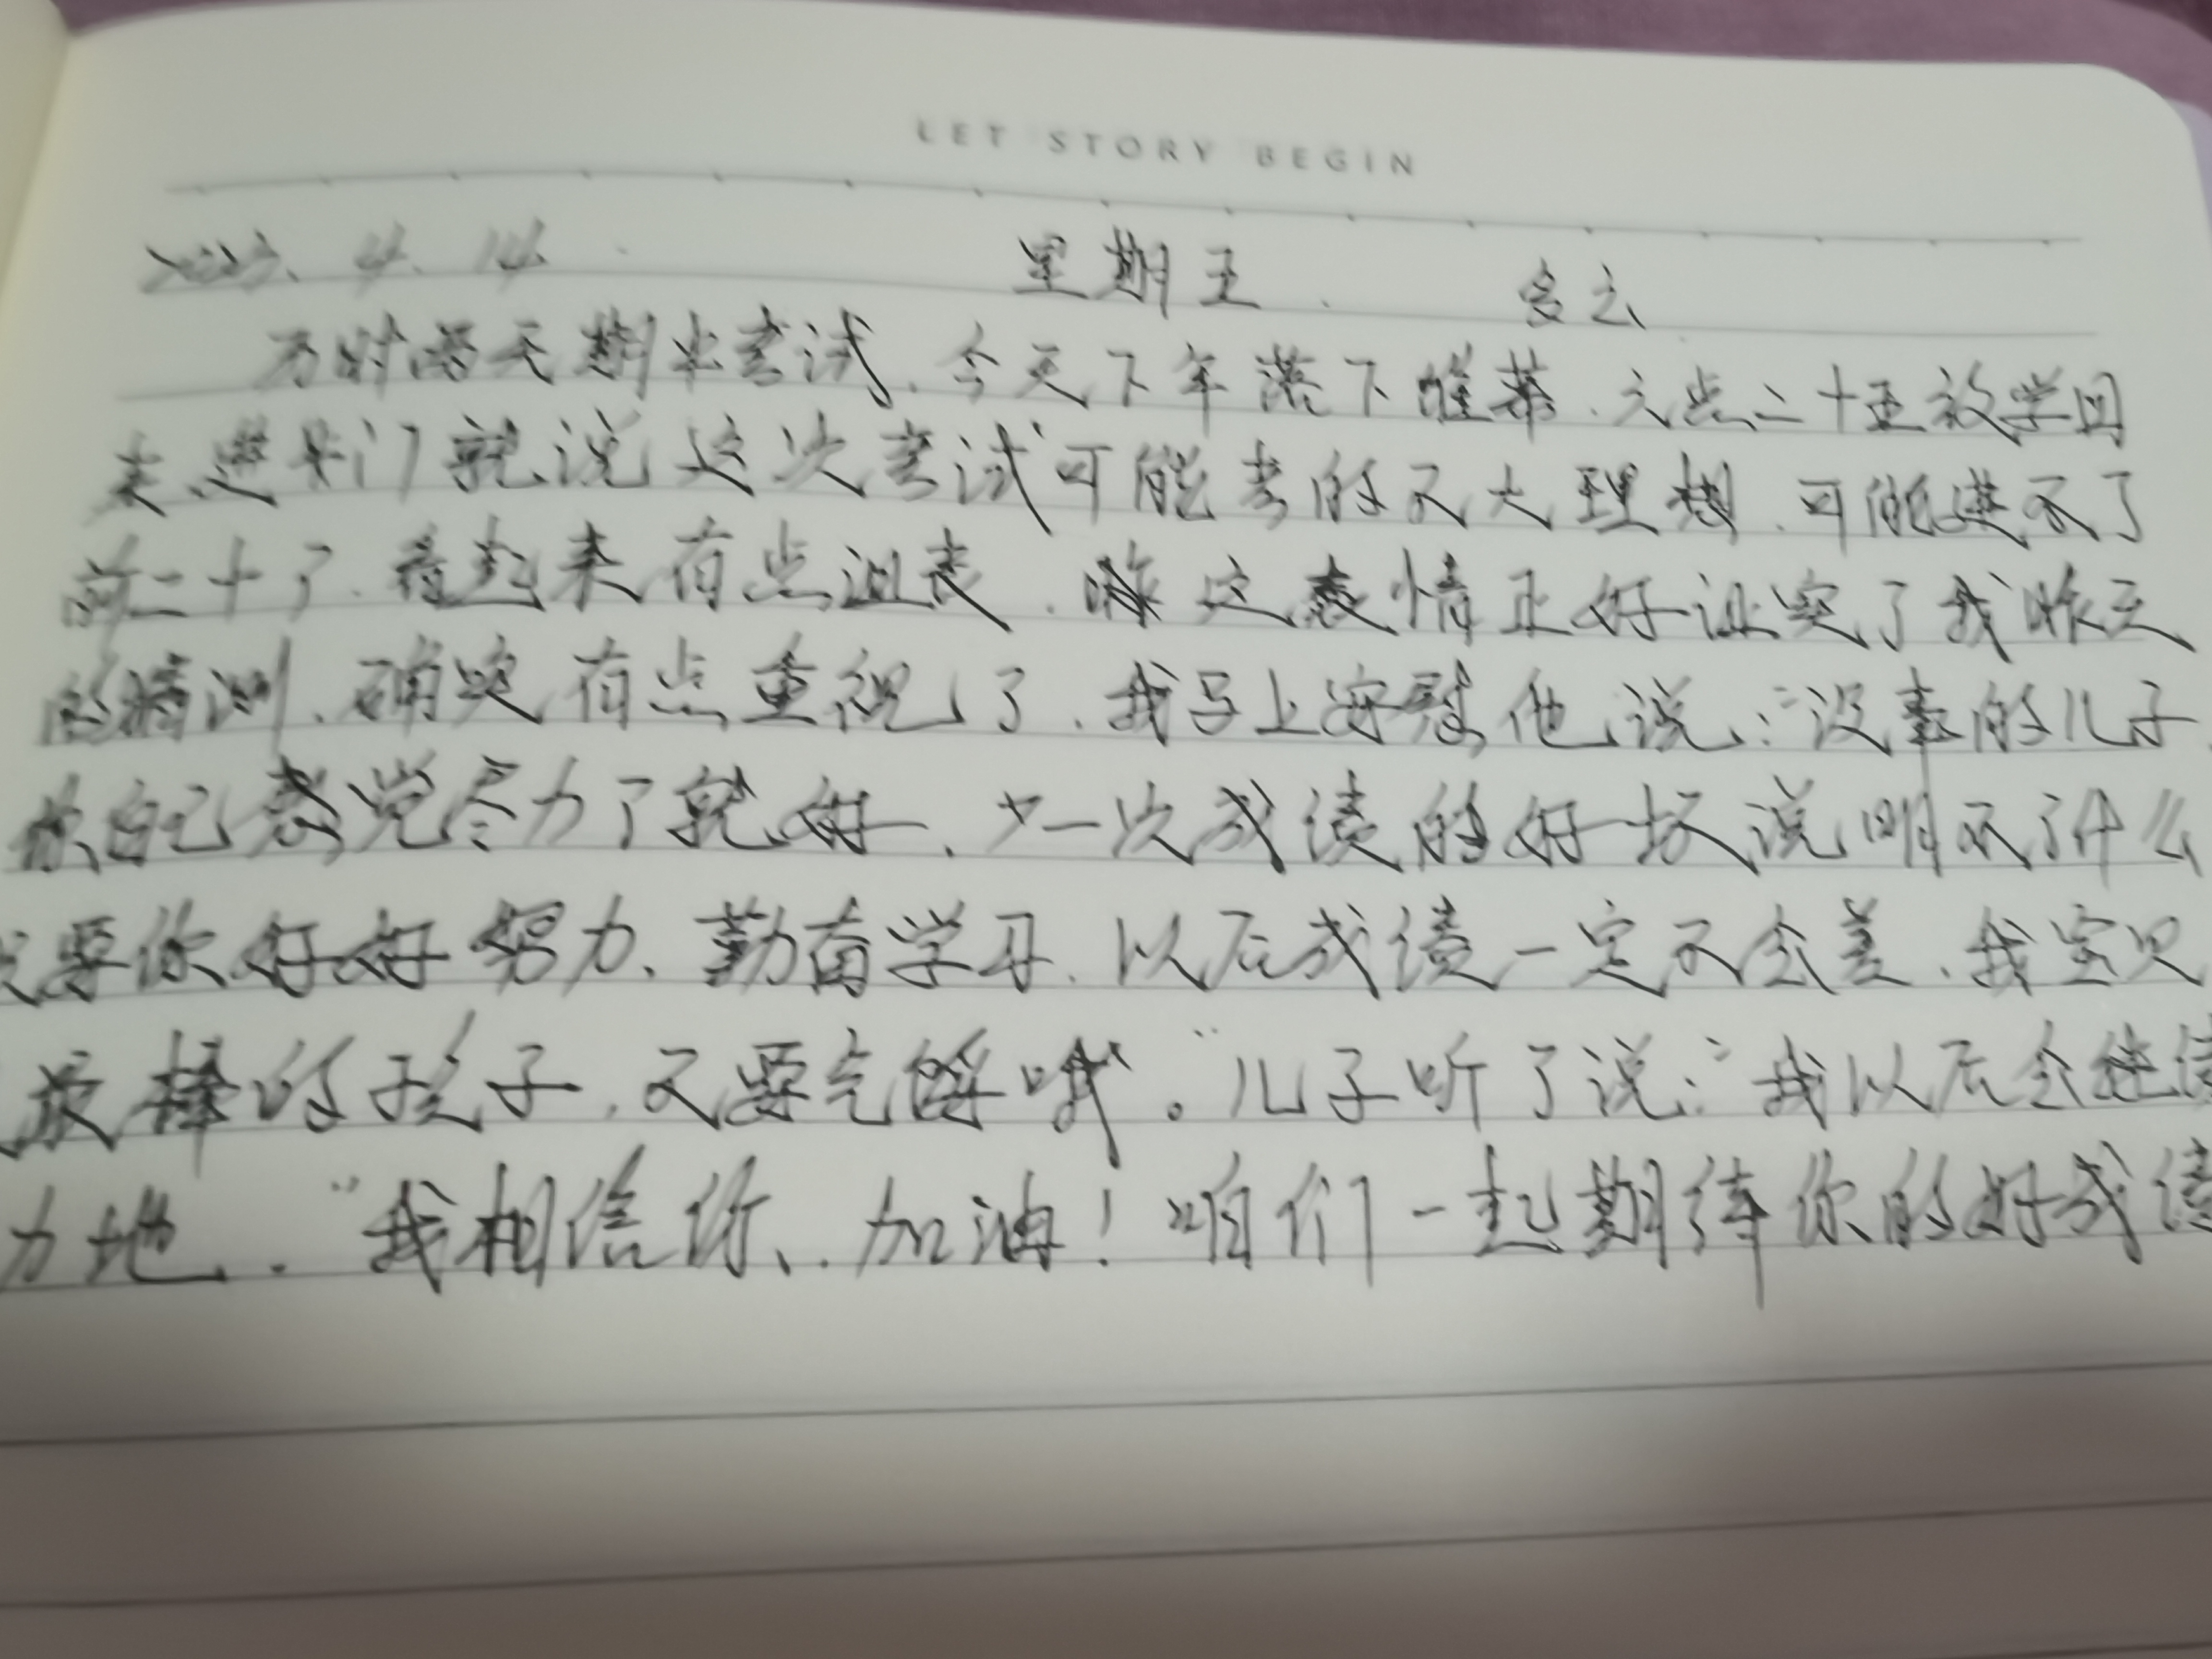 LET STORY BEGIN
2023. 4. 14. 星期五. 多云
历时两天期中考试.今天下午落下帷幕.六点二十五放学回
来进家门就说这次考试可能考的不太理想.可能进不了
前二十了.看起来有点沮丧.瞅这表情正好证实了我昨天
的猜测.确实有点重视了.我马上安慰他说:"没事的儿子.
你自己感觉尽力了就好.一次成绩的好坏说明不了什么
只要你好好努力.勤奋学习.以后成绩一定不会差.我宝贝
最棒的孩子.不要气馁哦"。儿子听了说:"我以后会继续
力地."我相信你、.加油!咱们一起期待你的好成绩